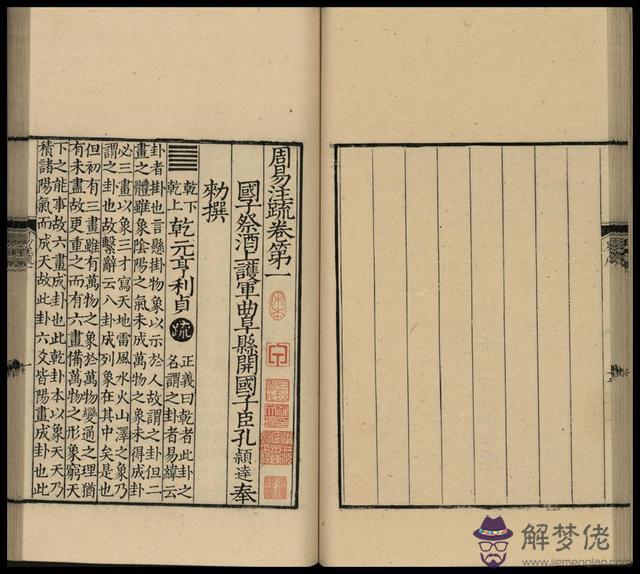 周易注疏卷第一
國子祭酒上護軍曲阜縣開國子臣孔穎達奉
勑撰
乾下
乾上
乾元亨利貞
疏
正義曰乾者此卦之
名謂之卦者易緯云
卦者掛也言懸掛物象以示於人故謂之卦但二
畫之體雖象陰陽之氣未成萬物之象未得成卦
必三畫以象三才寫天地雷風水火山澤之象乃
謂之卦也故繫辭云八卦成列象在其中矣是也
但初有三畫雖有萬物之象於萬物變通之理猶
有未盡故更重之而有六畫備萬物之形象窮天
下之能事故六畫成卦也此乾卦本以象天天乃
積諸陽氣而成天故此卦六爻皆陽畫成卦也此
宋本
解梦佬